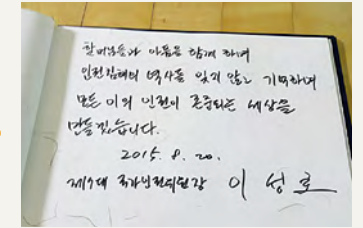 할머님들과 아픔을 함께 하며
인권침해의 역사를 잊지 않고 기억하며
모든 이의 인권이 존중되는 세상을
만들겠습니다.
2015. 8. 20.
제7대 국가인권위원장 이성호